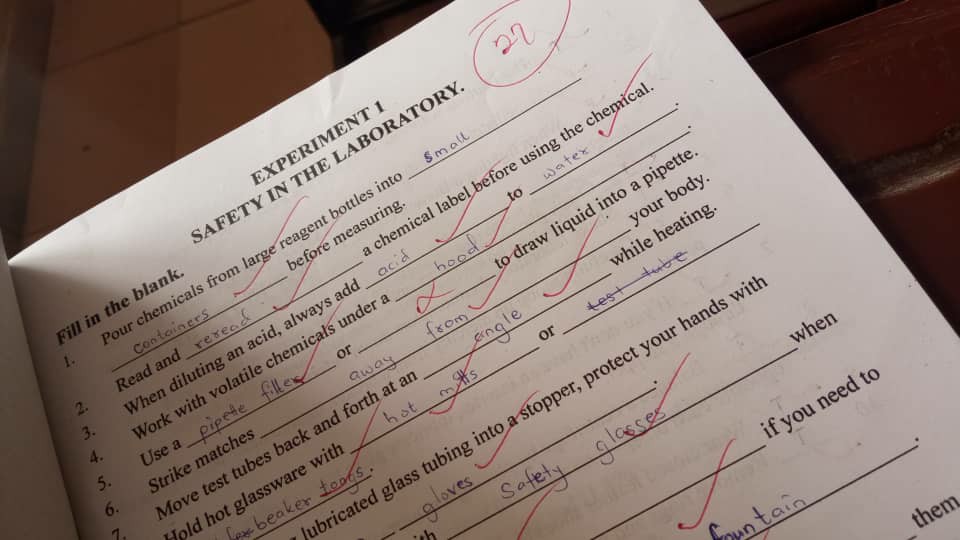 27
EXPERIMENT 1
SAFETY IN THE LABORATORY.
Fill in the blank.
1. Pour chemicals from large reagent bottles into small
containers before measuring.
2. Read and reread a chemical label before using the chemical.
3. When diluting an acid, always add acid to water.
4. Work with volatile chemicals under a hood.
5. Use a pipete filler or to draw liquid into a pipette.
6. Strike matches away from your body.
7. Move test tubes back and forth at an angle while heating.
Hold hot glassware with hot mitts or test tube
beaker tongs.
lubricated glass tubing into a stopper, protect your hands with
gloves.
safety glasses when
if you need to
fountain.
them